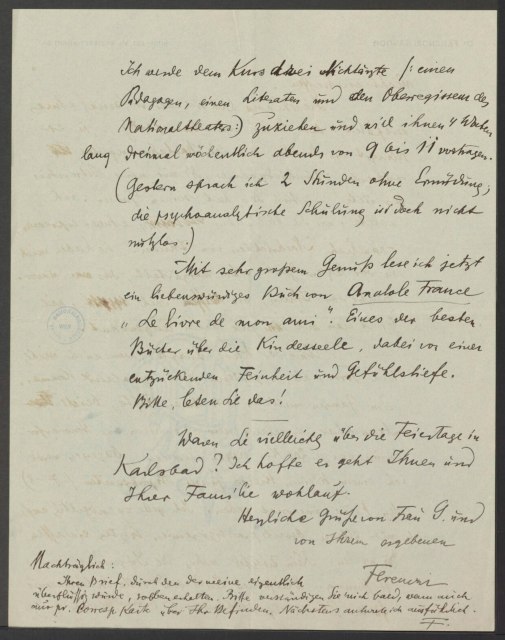 Ich werde dem Kurs drei Nichtärzte /: einen
Pädagogen, einen Literaten und den Oberregisseur des
Nationaltheaters :) zuziehen und will ihnen 4 Wochen
lang dreimal wöchentlich abends von 9 bis 11 vortragen.
(Gestern sprach ich 2 Stunden ohne Ermüdung;
die psychoanalytische Schulung ist doch nicht
nutzlos.)
Mit sehr großem Genuß lese ich jetzt
ein liebenswürdiges Buch von Anatole France
"Le livre de mon ami". Eines der besten
Bücher über die Kindesseele, dabei von einer
entzückenden Feinheit und Gefühlstiefe.
Bitte, lesen Sie das!
Waren Sie vielleicht über die Feiertage in
Karlsbad? Ich hoffe es geht Ihnen und
Ihrer Familie wohlauf.
Herzliche Grüße von Frau G. und
von Ihrem ergebenen
Ferenczi
Nachträglich:
Ihren Brief, durch den der meine eigentlich
überflüssig würde, soeben erhalten. Bitte verständigen Sie mich bald, wenn auch
nur pr. Corresp. Karte über Ihr Befinden. Nächstens antworte ich ausführlich.
F.